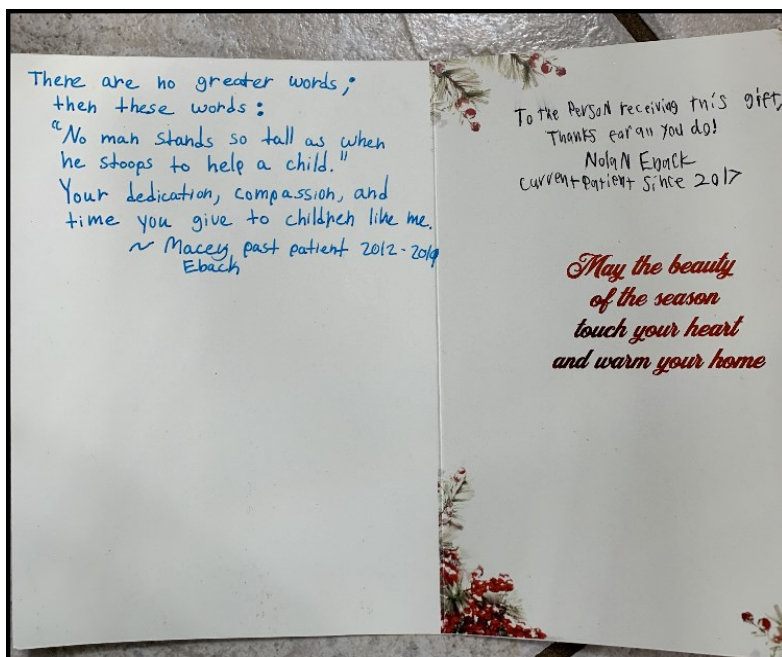 There are no greater words;
then these words:
"No man stands so tall as when
he stoops to help a child."
Your dedication, compassion, and
time you give to children like me.
~ Macey past patient 2012-2019
Eback
To the Person receiving this gift,
Thanks for all you do!
Nolan Eback
Current Patient Since 2017
May the beauty
of the season
touch your heart
and warm your home